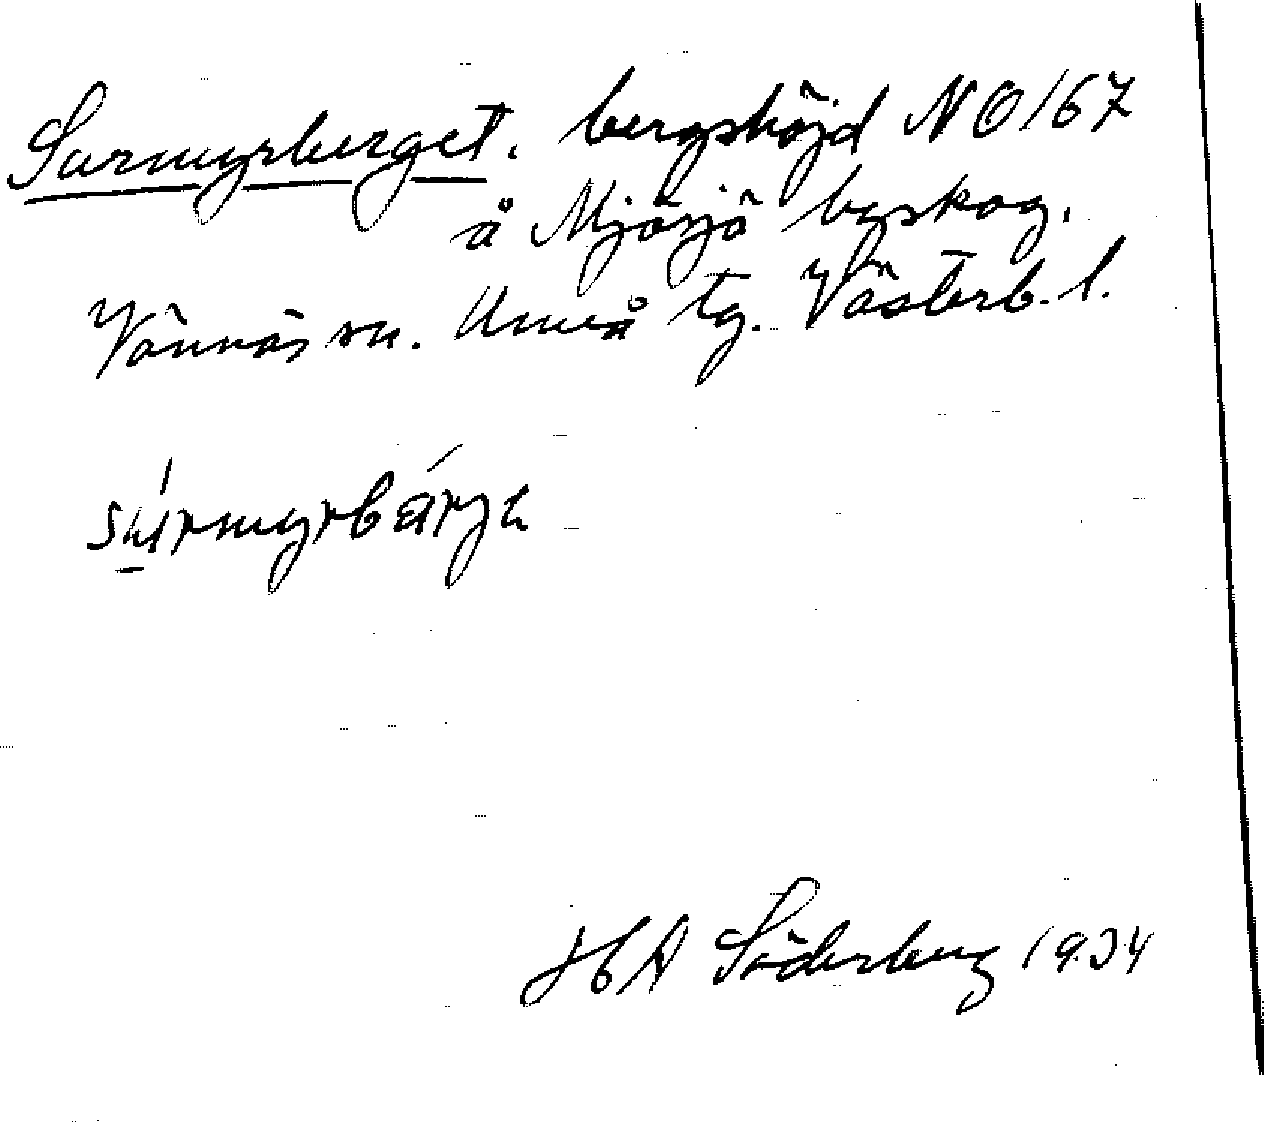 Surmyrberget. bergshöjd NO 167
å Mjösjö byskog.
Vännäs sn. Umeå tg. Västerb. l.
H A Söderberg 1934